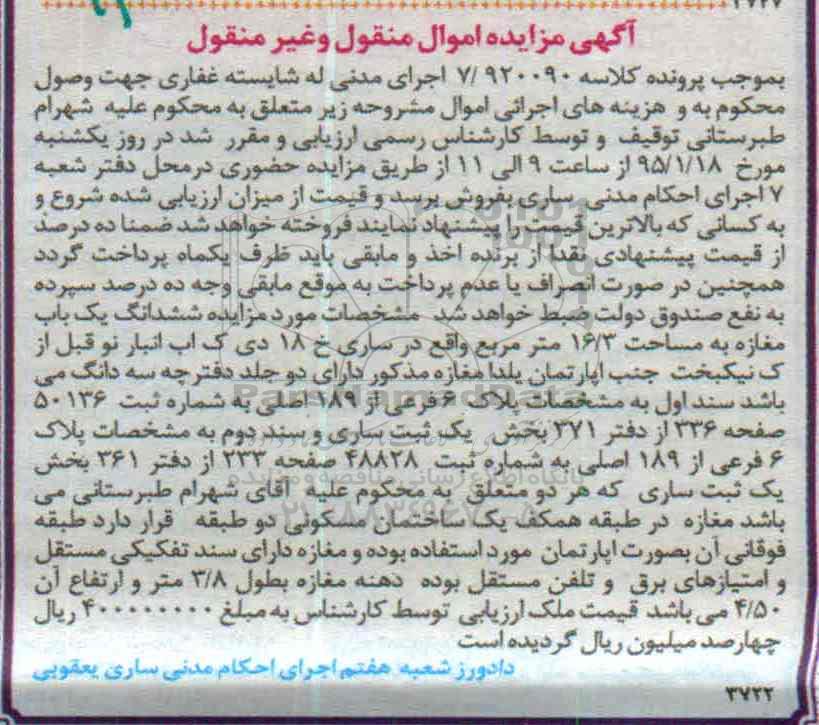 ۳۷۲۷
آگهی مزایده اموال منقول وغیر منقول
بموجب پرونده کلاسه ۹۲۰۰۹۰ /۷ اجرای مدنی له شایسته غفاری جهت وصول
محکوم به و هزینه های اجرائی اموال مشروحه زیر متعلق به محکوم علیه شهرام
طبرستانی توقیف و توسط کارشناس رسمی ارزیابی و مقرر شد در روز یکشنبه
مورخ ۹۵/۱/۱۸ از ساعت ۹ الی ۱۱ از طریق مزایده حضوری درمحل دفتر شعبه
۷ اجرای احکام مدنی ساری بفروش برسد و قیمت از میزان ارزیابی شده شروع و
به کسانی که بالاترین قیمت را پیشنهاد نمایند فروخته خواهد شد ضمنا ده درصد
از قیمت پیشنهادی نقدا از برنده اخذ و مابقی باید ظرف یکماه پرداخت گردد
همچنین در صورت انصراف یا عدم پرداخت به موقع مابقی وجه ده درصد سپرده
به نفع صندوق دولت ضبط خواهد شد مشخصات مورد مزایده ششدانگ یک باب
مغازه به مساحت ۱۶/۳ متر مربع واقع در ساری خ ۱۸ دی ک اب انبار نو قبل از
ک نیکبخت جنب اپارتمان یلدا مغازه مذکور دارای دو جلد دفترچه سه دانگ می
باشد سند اول به مشخصات پلاک ۶ فرعی از ۱۸۹ اصلی به شماره ثبت ۵۰۱۳۶
صفحه ۳۳۶ از دفتر ۳۷۱ بخش یک ثبت ساری و سند دوم به مشخصات پلاک
۶ فرعی از ۱۸۹ اصلی به شماره ثبت ۴۸۸۲۸ صفحه ۲۳۳ از دفتر ۳۶۱ بخش
یک ثبت ساری که هر دو متعلق به محکوم علیه اقای شهرام طبرستانی می
باشد مغازه در طبقه همکف یک ساختمان مسکونی دو طبقه قرار دارد طبقه
فوقانی آن بصورت اپارتمان مورد استفاده بوده و مغازه دارای سند تفکیکی مستقل
و امتیازهای برق و تلفن مستقل بوده دهنه مغازه بطول ۳/۸ متر و ارتفاع آن
۴/۵۰ می باشد قیمت ملک ارزیابی توسط کارشناس به مبلغ ۴۰۰۰۰۰۰۰۰ ریال
چهارصد میلیون ریال گردیده است
دادورز شعبه هفتم اجرای احکام مدنی ساری یعقوبی
۳۷۲۲
ParsNamadData